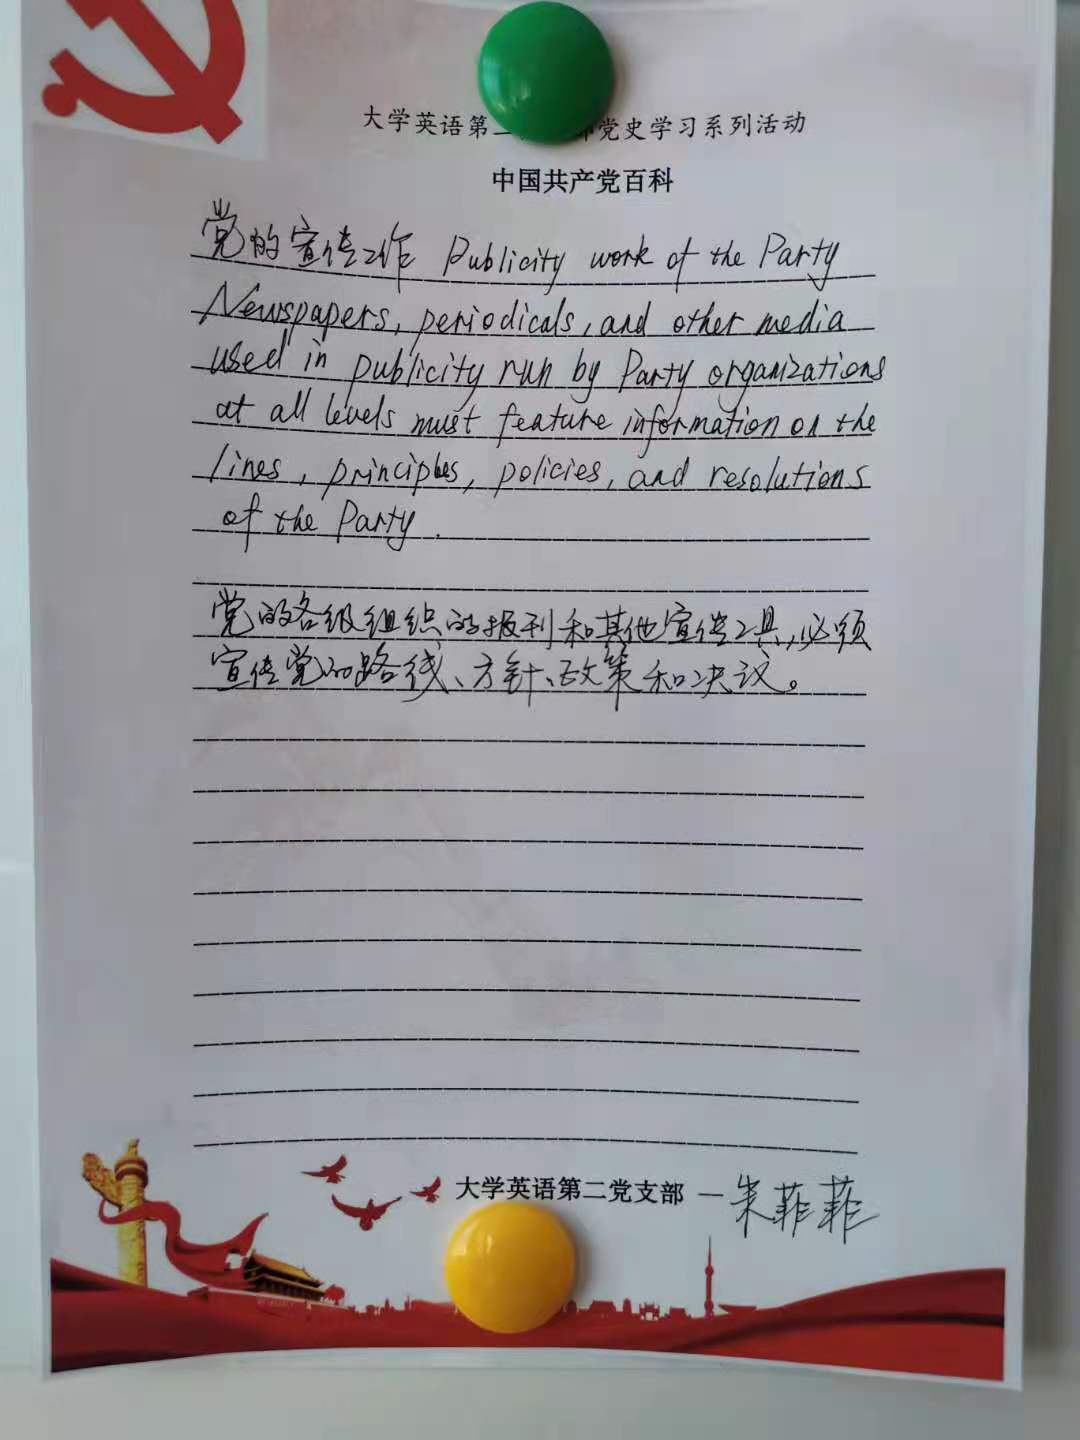 大学英语第二 部党史学习系列活动
中国共产党百科
党的宣传工作 Publicity work of the Party
Newspapers, periodicals, and other media
used in publicity run by Party organizations
at all levels must feature information on the
lines, principles, policies, and resolutions
of the Party.
党的各级组织的报刊和其他宣传工具,必须
宣传党的路线、方针、政策和决议。
大学英语第二党支部 — 朱菲菲